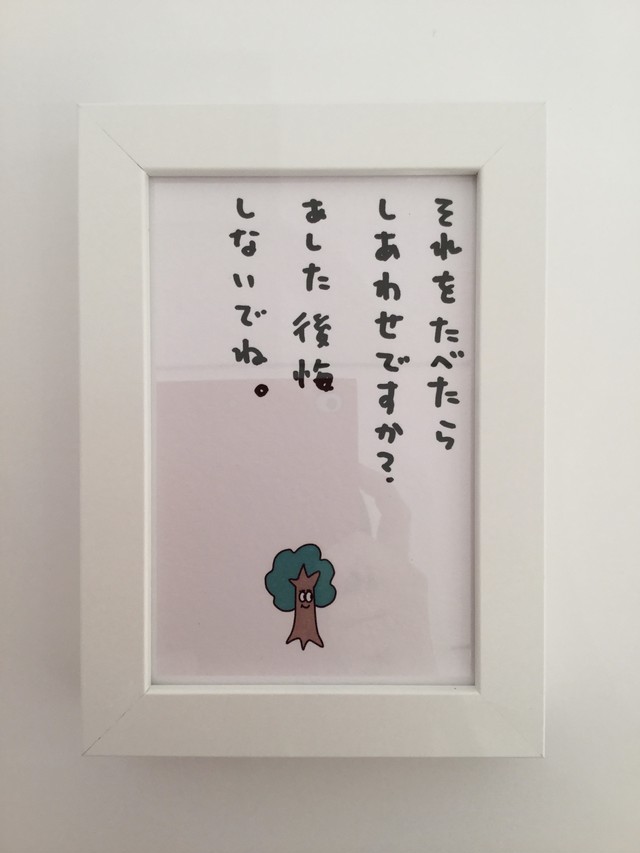 それをたべたら
しあわせですか?
あした後悔
しないでね。